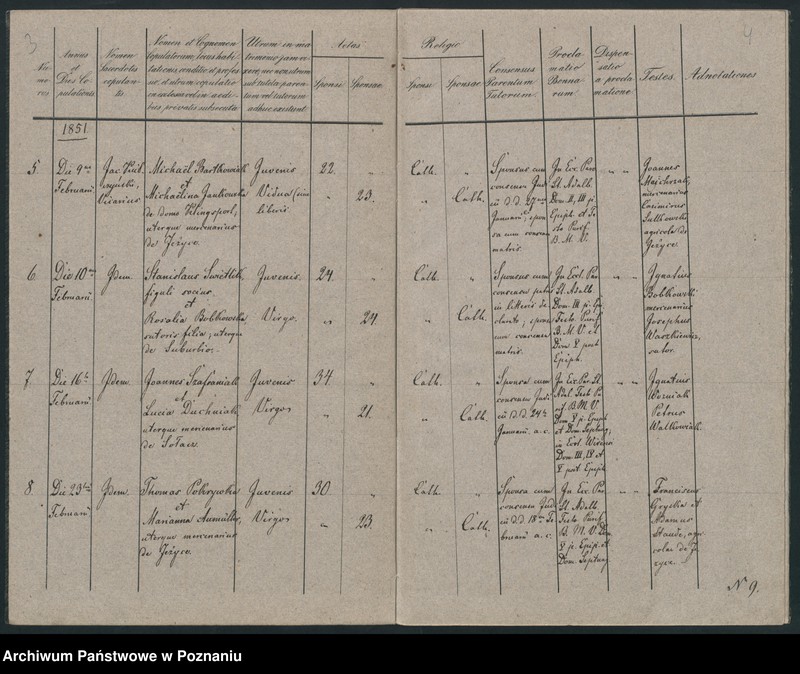 3
4
Nu-
me-
res
Annus
et
Dies Co-
pulationis
Nomen
Sacerdotis
copulan-
tis
Nomen et Cognomen
Copulatorum, locus habi-
tationis, conditio et profes-
Utrum in ma-
trimonio jam vi-
Aetas
Sponsi
Sponsae
Religio
Sponsi
Sponsae
Consensus
Parentum
Tutorum
Procla-
matio
Banno-
rum
Dispen-
satio
a procla-
matione
Testes
Adnotationes
1851
5.
Die 9na
Februarii
Jac. Vict.
Vicarius
Michaël Bartkowiak
et
Michaëlina Jankowska
de domo Klingspol,
uterque mercenarius
de Jeżyce.
Juvenis
Vidua
liberis.
22.
"
"
23.
Cath.
"
"
Cath.
Sponsus cum
consensu Jud.
cū d.d. 27ma
Januarii, spon-
sa cum consensu
matris.
In Eccl. Par.
St. Adalb.
Dom. II, III p.
Epiph. et Fe-
sto Purif.
B. M. V.
" "
Joannes
Majchrzak,
mercenarius
Casimirus
Sulkowski
agricola de
Jeżyce.
6.
Die 10ma
Februarii
Idem.
Stanislaus Swietlik,
figuli socius
et
Rosalia Bobkowska
sutoris filia, uterque
de Suburbio.
Juvenis.
Virgo.
24.
"
"
24.
Cath.
"
"
Cath.
Sponsus cum
consensu patris
in litteris de
sponsa
cum consensu
matris.
In Eccl. Par.
St. Adalb.
Dom. III p. Epi.
Festo Purif.
B. M. V. et
Dom. V post
Epiph.
" "
Ignatius
Bobkowski
mercenarius
Josephus
Waszkiewicz,
sutor.
7.
Die 16ta
Februarii
Idem.
Joannes Szafraniak
et
Lucia Duchniak
uterque mercenarius
de Sołacz.
Juvenis
Virgo
34.
"
"
21.
Cath.
"
"
Cath.
Sponsa cum
consensu Judi.
cū d.d. 24ta
Januarii a. c.
In Ecc. Par. St.
Adal. Festo Pu-
rif. B. M. V.
Dom. V p. Epiph.
et Dom. Septuag.
in Eccl.
Dom. III, IV et
V post. Epiph.
" "
Ignatius
Wozniak
Petrus
Walkowiak.
8.
Die 23tia
Februarii
Idem.
Thomas Pokrywka
et
Marianna Aumüller,
uterque mercenarius
de Jeżyce.
Juvenis
Virgo
30.
"
"
23.
Cath.
"
"
Cath.
Sponsa cum
consensu Jud.
cū d.d. 18va Fe-
bruarii a. c.
In Ecc. Par.
St. Adalb.
Festo Purif.
B. M. V. Dom.
V p. Epip. et
Dom. Septuag.
" "
Franciscus
et
Adamus
Staude, agri-
colae de J-
eżyce.
N 9.
Archiwum Państwowe w Poznaniu